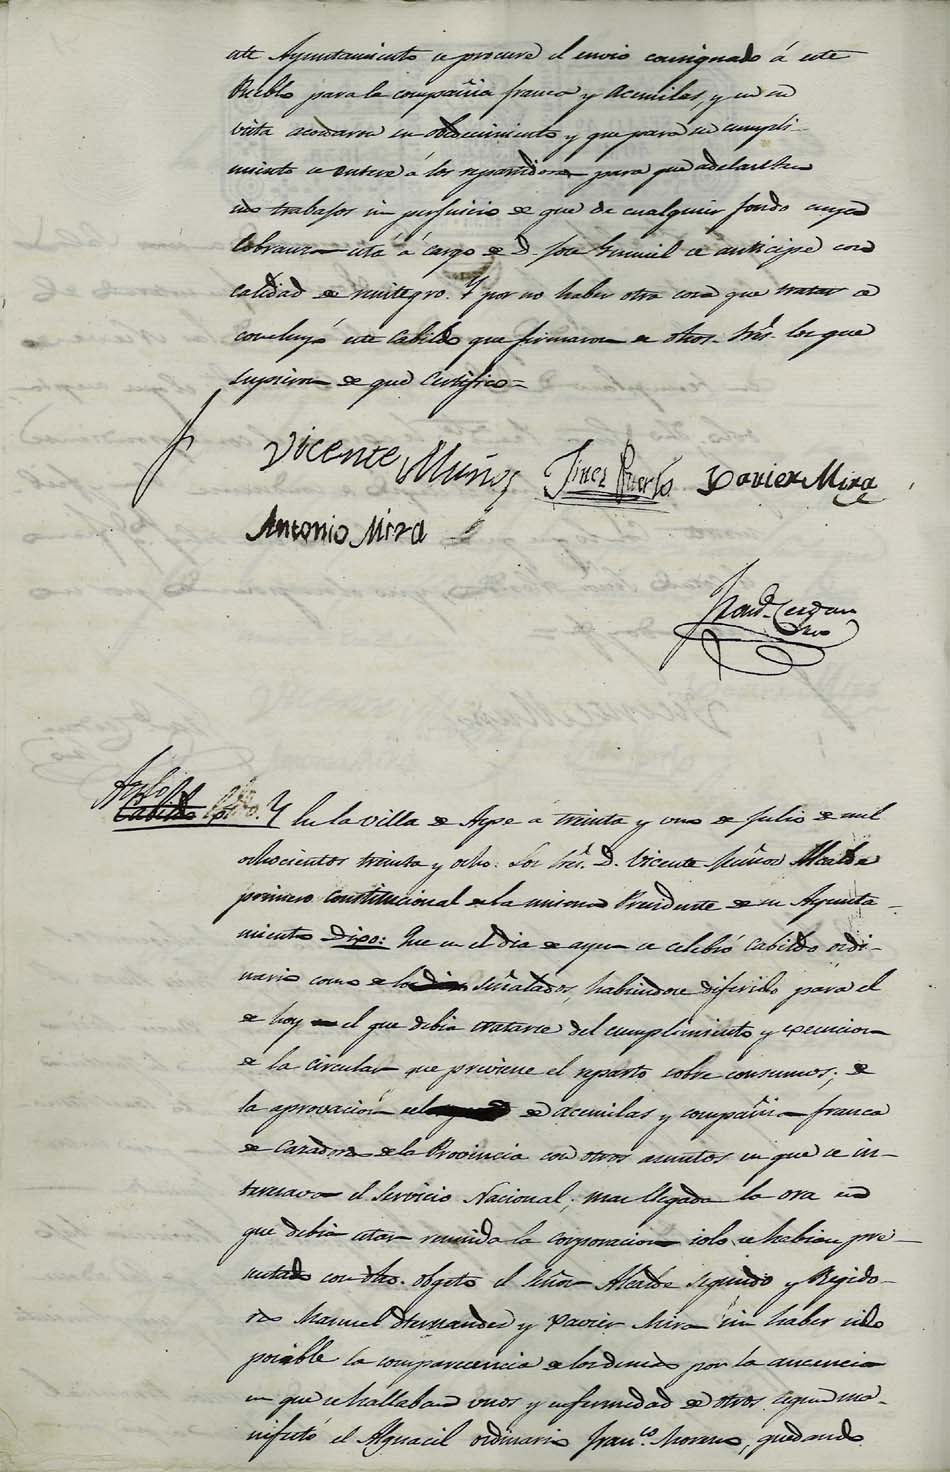 este Ayuntamiento se procure el envio consignado á este
Pueblo para la compañia franca y Acemilas, y en su
vista acordaron su obedecimiento y que para su cumpli-
miento se entere á los repartidores para que adelanten
sus trabajos sin perjuicio de que de cualquier fondo cuya
cobranza está á cargo de D. Jose Gumiel se anticipe con
calidad de reintegro. Y por no haber otra cosa que tratar se
concluyó este Cabildo que firmaron de dhos. Sres. los que
supieron de que certifico=
Vicente Muños Jines Puerto Xavier Mira
Antonio Mira
Cerdan
Cabildo Y En la villa de Aspe á treinta y uno de Julio de mil
ochocientos treinta y ocho: Los Sres. D. Vicente Muños Alcalde
primero constitucional de la misma Presidente de su Ayunta-
miento Dixo: Que en el dia de ayer se celebró Cabildo ordi-
nario como de los señalados, habiendose diferido para el
de hoy el que debia tratarse del cumplimiento y execucion
de la circular que previene el reparto sobre consumos; de
la aprovación del de acemilas y compañia franca
de Cazadores de la Provincia con otros asuntos en que se in-
teresava el Servicio Nacional; mas llegada la ora en
que debia estar reunida la corporacion solo se habian pre-
sentado con dho. objeto el Señor Alcalde segundo y Regido-
res Manuel Hernandes y Xavier Mira sin haber sido
posible la comparecencia de los demas por la ausencia
en que se hallaban unos y enfermedad de otros segun ma-
nifestó el Alguacil ordinario Franco. Moreno, quedando